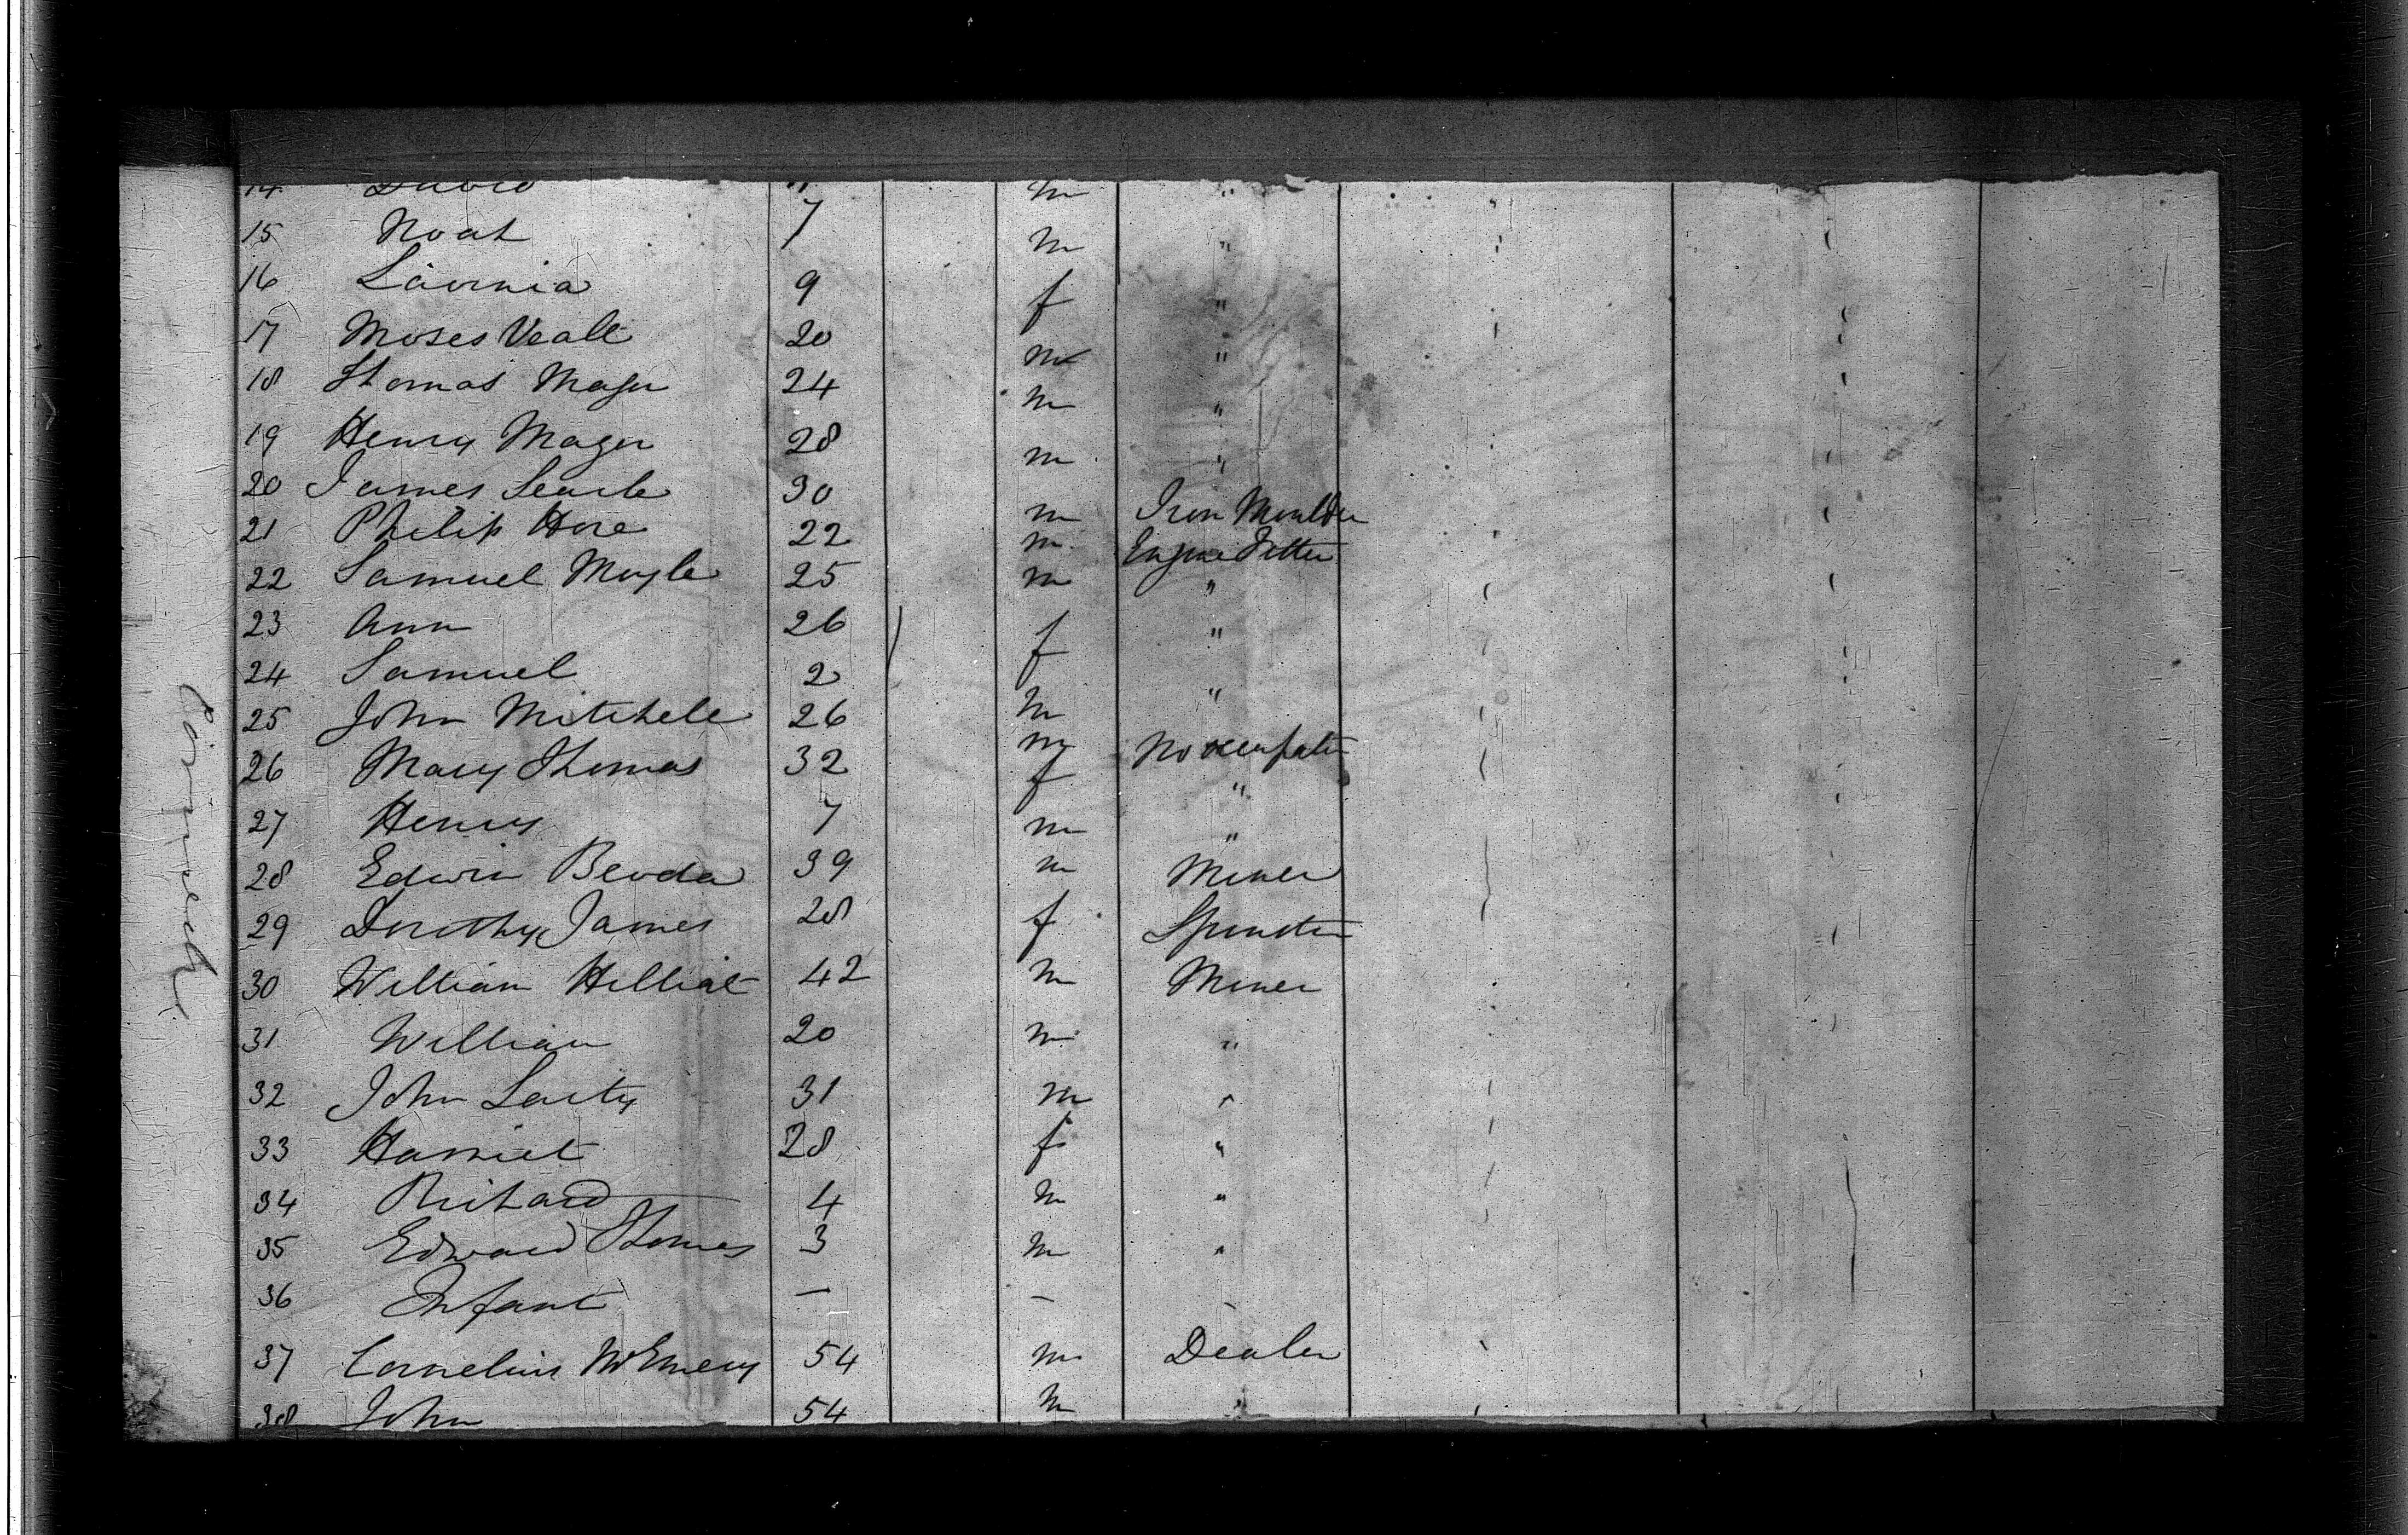 14 David 11 m "
15 Noah 7 m "
16 Lavinia 9 f "
17 Moses Veale 20 m "
18 Thomas Mager 24 m "
19 Henry Mager 28 m "
20 James Searle 30 m Iron Moulder
21 Philip Hore 22 m Engine Fitter
22 Samuel Moyle 25 m "
23 Ann 26 f "
24 Samuel 2 m "
25 John Mitchell 26 m No occupatn
26 Mary Thomas 32 f "
27 Henry 7 m "
28 Edwin 39 m Miner
29 Dorothy James 28 f Spinster
30 William 42 m Miner
31 William 20 m "
32 John Laity 31 m "
33 Harriet 28 f "
34 Richard 4 m "
35 Edward Thomas 3 m "
36 Infant — —
37 Cornelius McEnery 54 m Dealer
38 John 54 m "